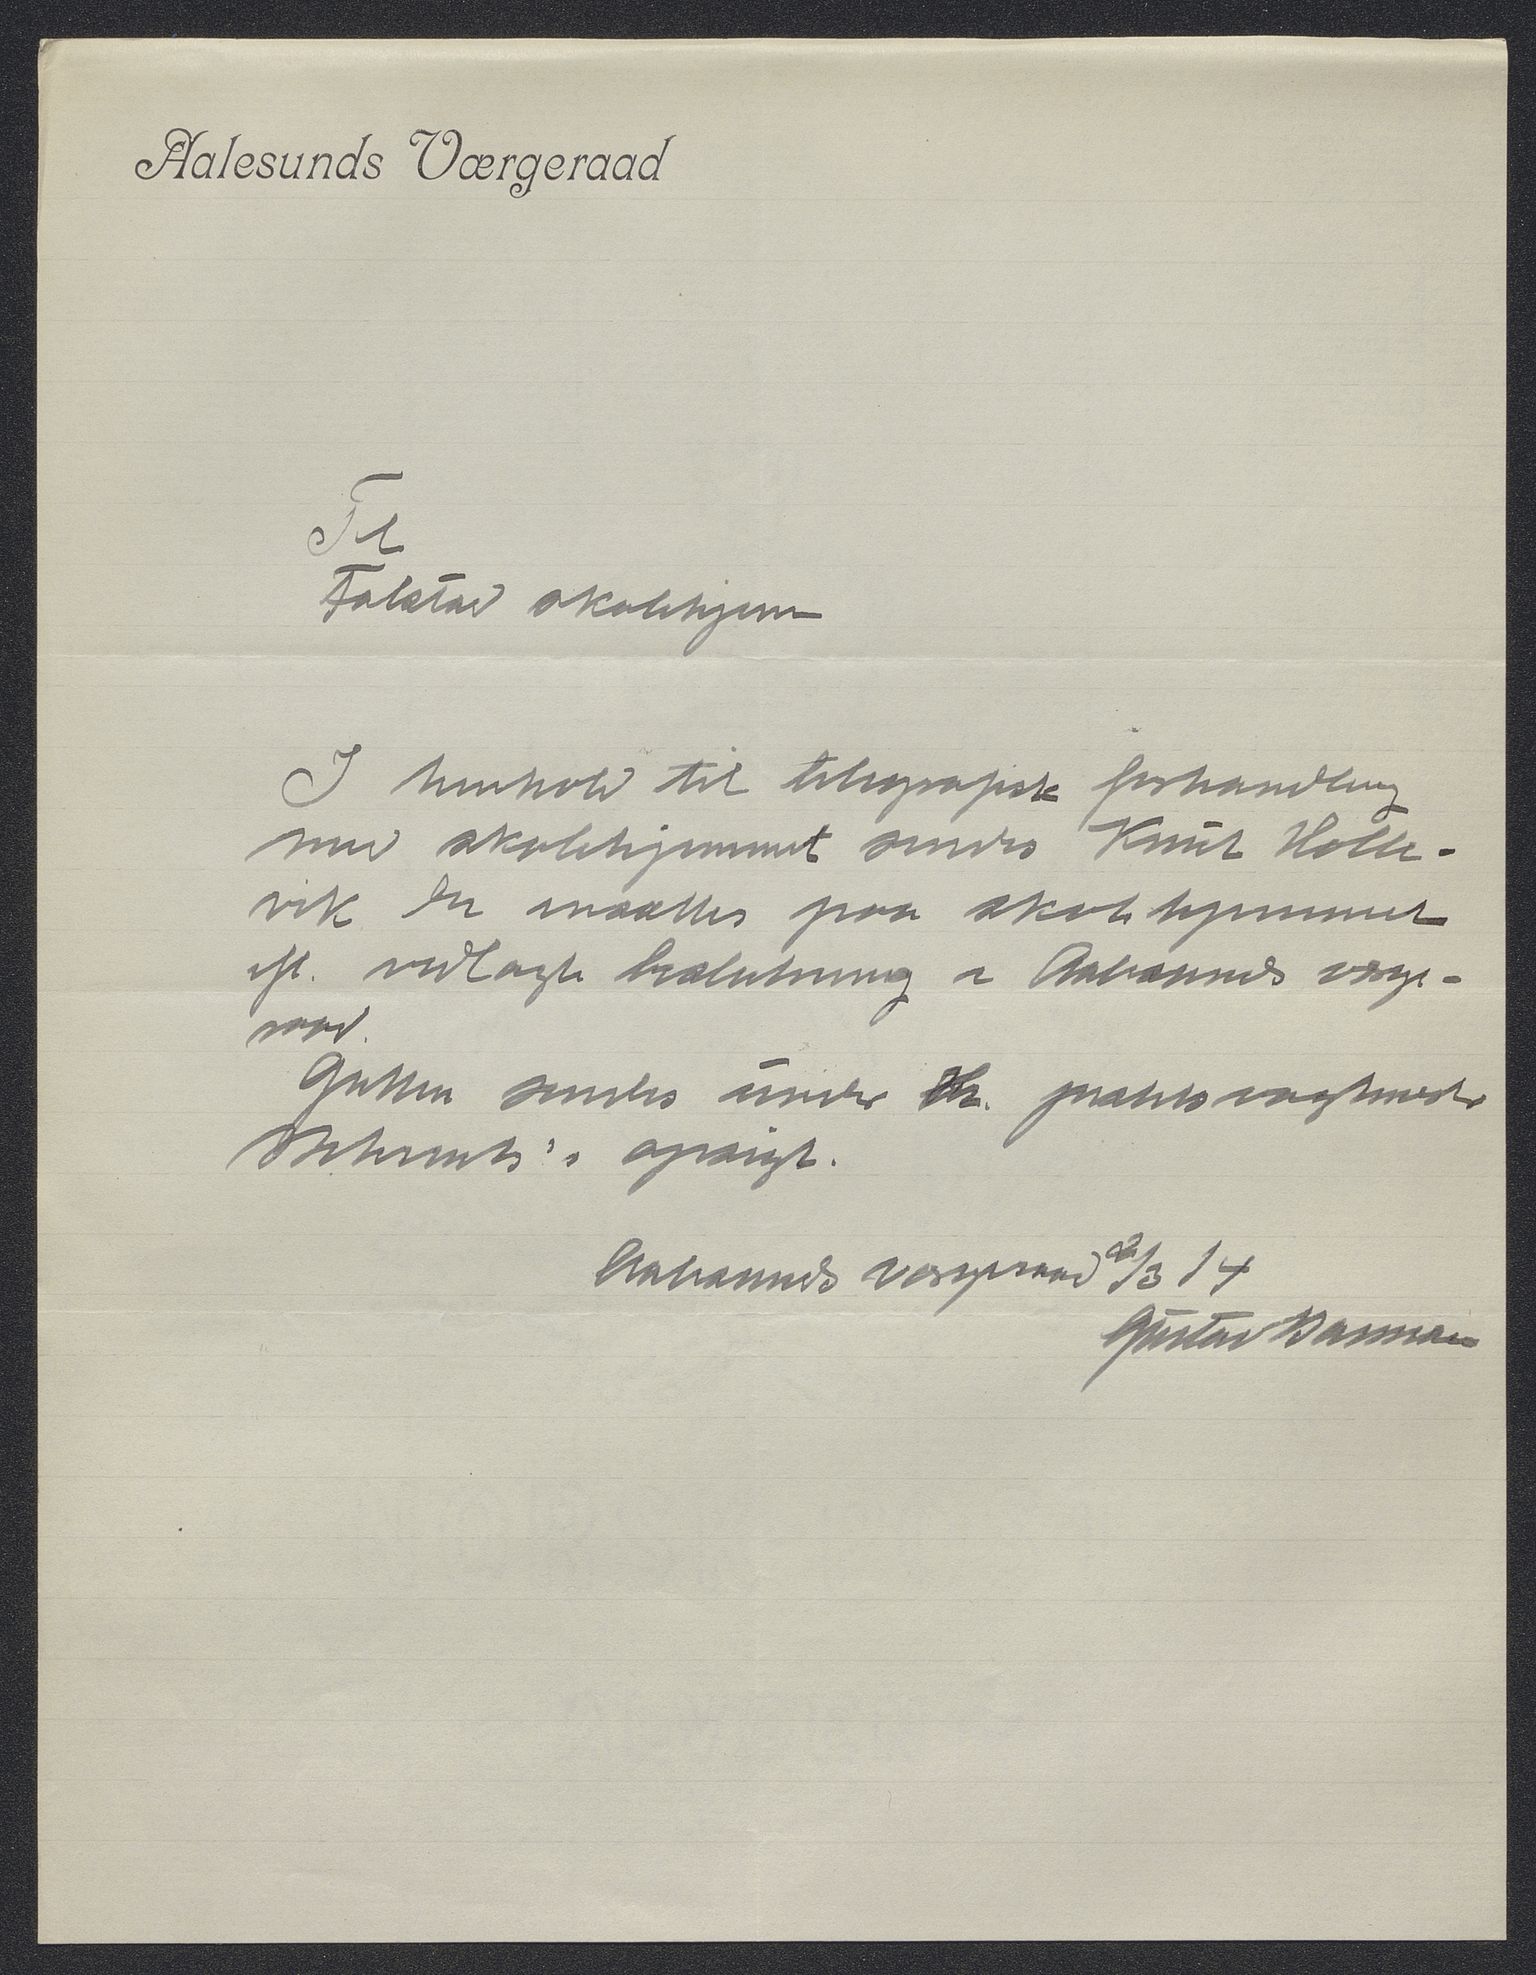 Aalesunds Værgeraad
Til
Falstad skolehjem
I henhold til telegrafisk forhandling
med skolehjemmet sendes Knut Holle-
vik der indsættes paa skolehjemmet
eft. vedlagte beslutning i Aalesunds værge-
raad.
Gutten sendes under Hr. politivagtmester
opsigt.
Aalesunds værgeraad 2/3 14
Gustav